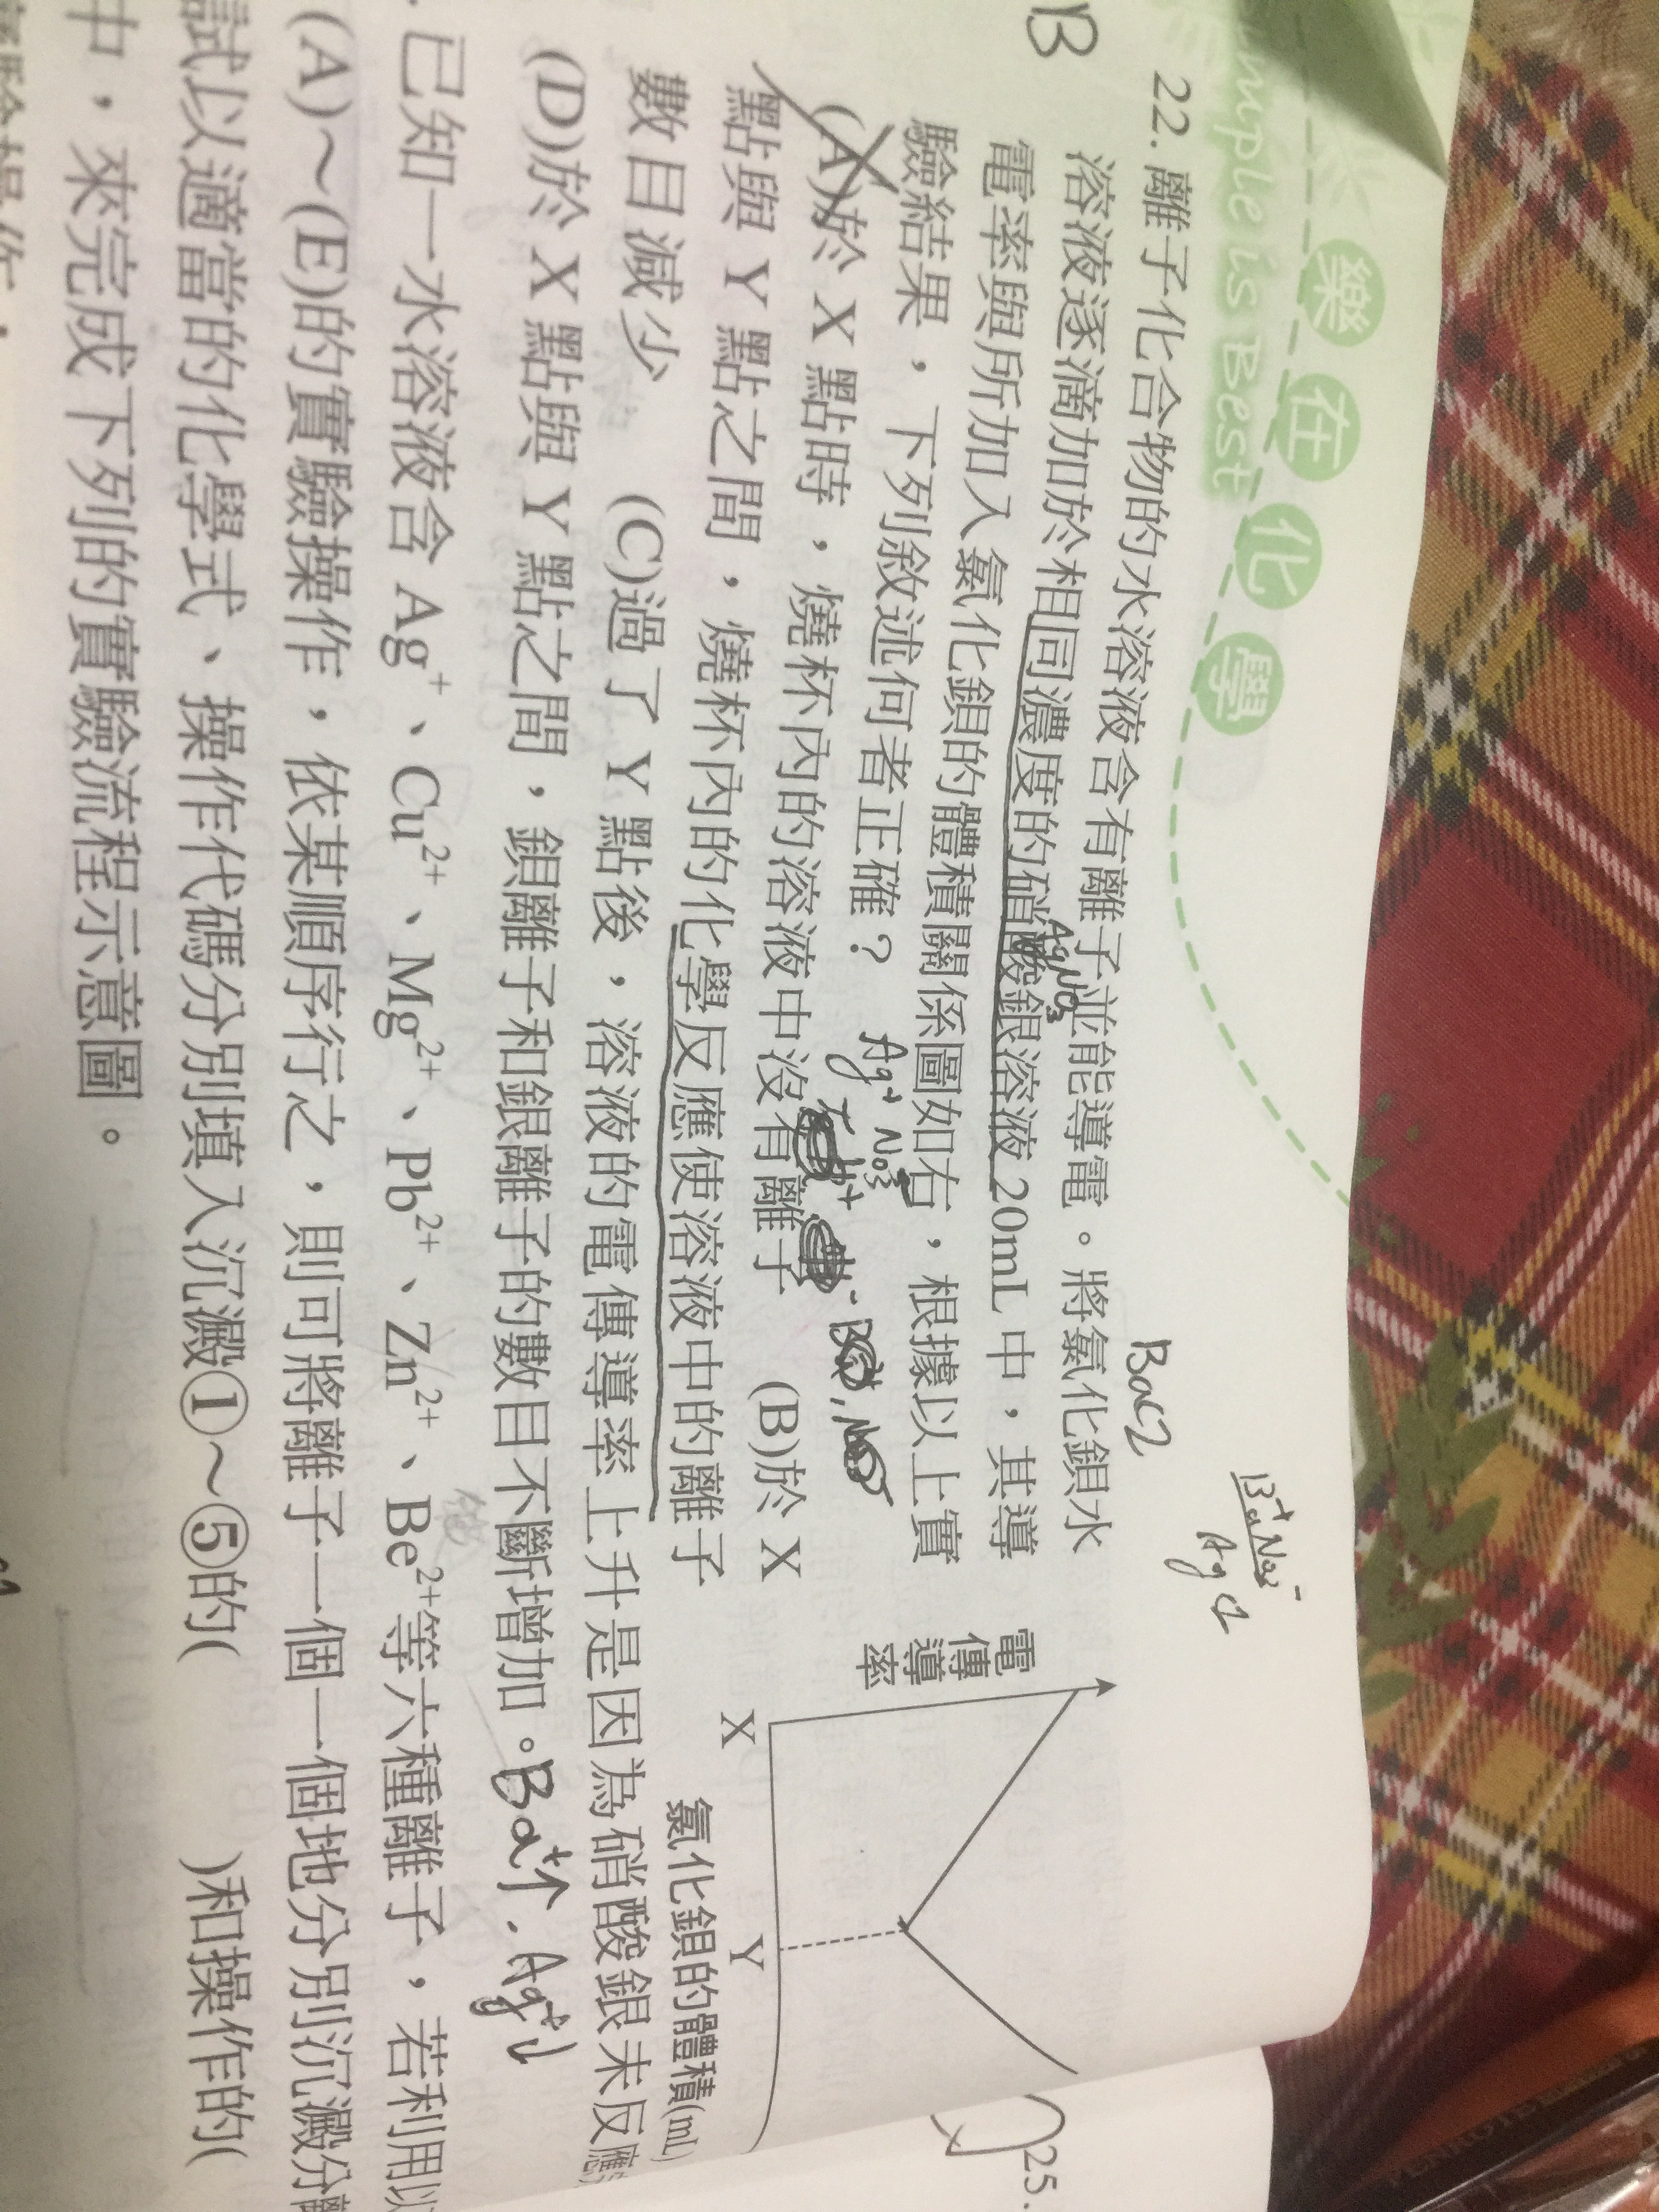 樂在化學
Simple is Best
BaCl
Ba+ NO3-
AgCl
B
22. 離子化合物的水溶液含有離子並能導電。將氯化鋇水
溶液逐滴加於相同濃度的硝酸銀溶液 20mL 中，其導
AgNO3
電率與所加入氯化鋇的體積關係圖如右，根據以上實
驗結果，下列敘述何者正確？
Ag+ NO3-
(A)於 X 點時，燒杯內的溶液中沒有離子 (B)於 X
點與 Y 點之間，燒杯內的化學反應使溶液中的離子
數目減少 (C)過了 Y 點後，溶液的電傳導率上升是因為硝酸銀未反應
(D)於 X 點與 Y 點之間，鋇離子和銀離子的數目不斷增加。
Ba+↑，Ag+↓
電傳導率
X
Y
氯化鋇的體積(mL)
. 已知一水溶液含 Ag+、Cu2+、Mg2+、Pb2+、Zn2+、Be2+等六種離子，若利用以
(A)～(E)的實驗操作，依某順序行之，則可將離子一個一個地分別沉澱分離
試以適當的化學式、操作代碼分別填入沉澱①～⑤的( )和操作的(
中，來完成下列的實驗流程示意圖。
25.